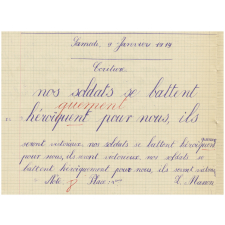 Samedi, 9 Janvier 1919
Écriture
nos soldats se battent
quement
héroïquent pour nous, ils
seront victorieux, nos soldats se battent héroïquement
pour nous, ils seront victorieux. nos soldats se
battent héroïquement pour nous, ils seront
Note 7 Place
E. Masson